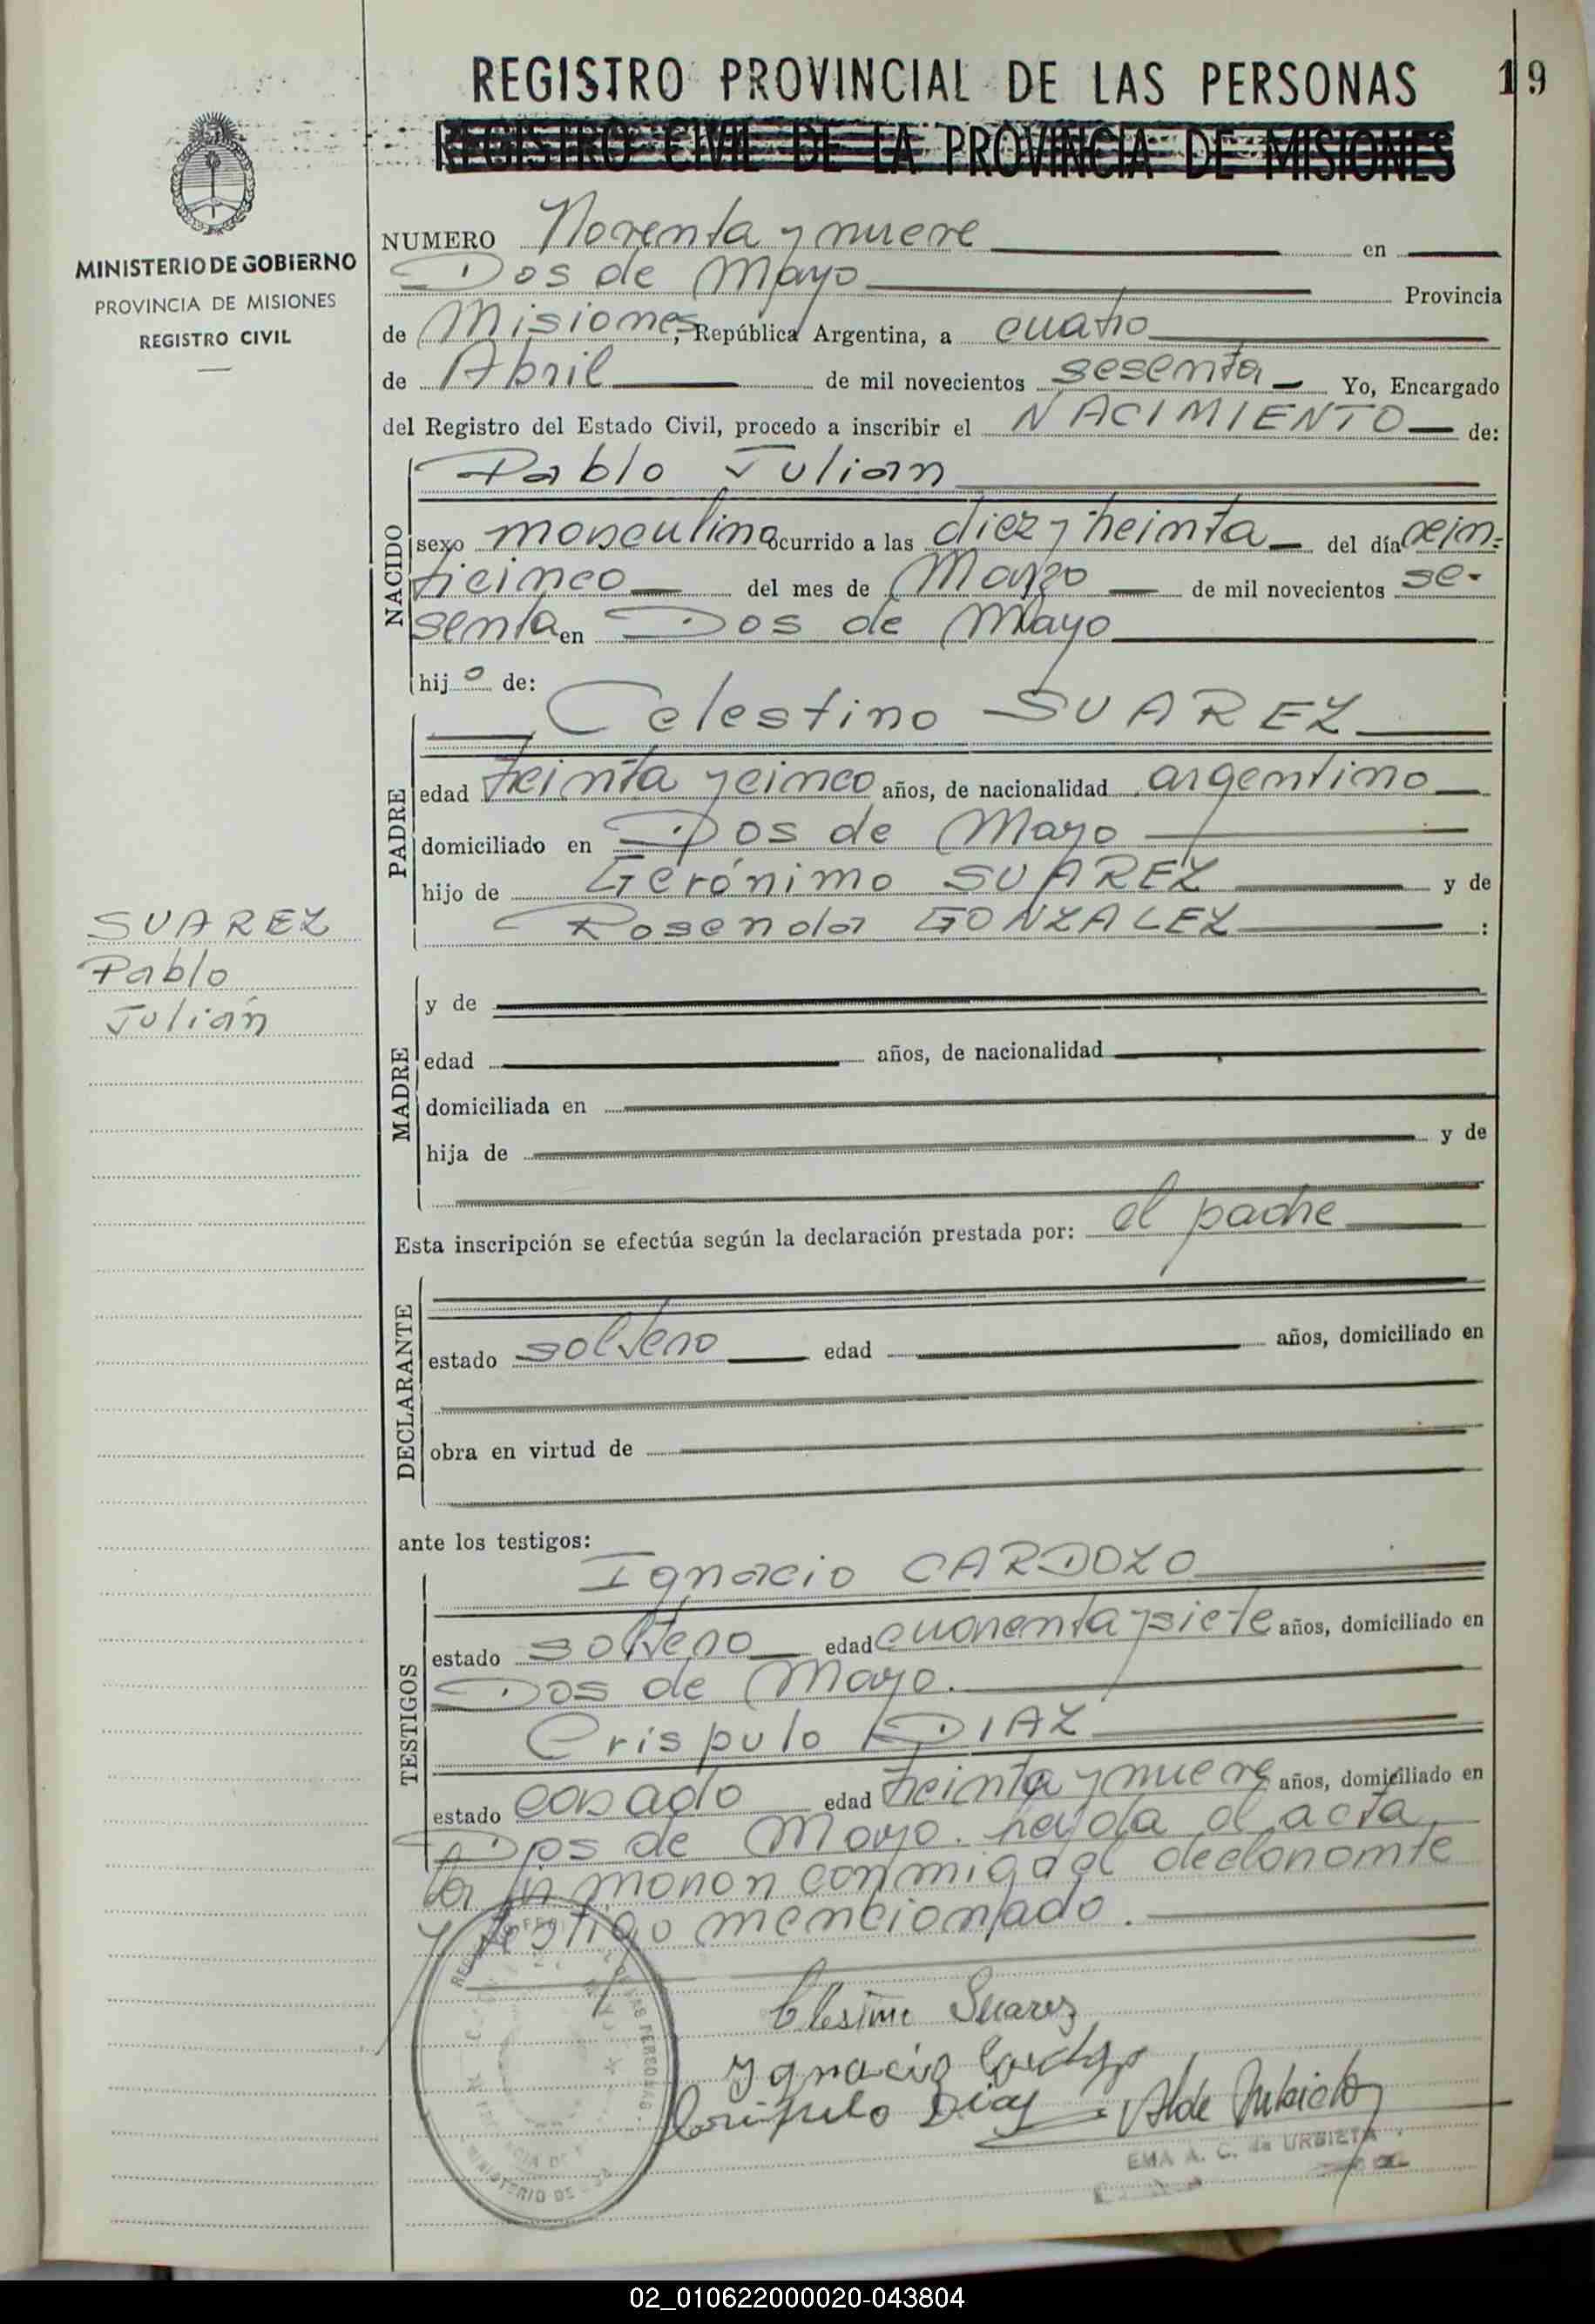 REGISTRO PROVINCIAL DE LAS PERSONAS 19
REGISTRO CIVIL DE LA PROVINCIA DE MISIONES
MINISTERIO DE GOBIERNO
PROVINCIA DE MISIONES
REGISTRO CIVIL
NUMERO Noventa y nueve en
Dos de Mayo Provincia
de Misiones, República Argentina, a cuatro
de Abril de mil novecientos sesenta Yo, Encargado
del Registro del Estado Civil, procedo a inscribir el NACIMIENTO de:
NACIDO
Pablo Julian
sexo masculino ocurrido a las diez y treinta del día vein-
ticinco del mes de Marzo de mil novecientos se-
senta en Dos de Mayo
hijo de:
PADRE
Celestino SUAREZ
edad treinta y cinco años, de nacionalidad argentino
domiciliado en Dos de Mayo
hijo de Gerónimo SUAREZ y de
Rosenda GONZALEZ :
SUAREZ
Pablo
Julián
MADRE
y de
edad años, de nacionalidad
domiciliada en
hija de y de
Esta inscripción se efectúa según la declaración prestada por: el padre
DECLARANTE
estado soltero edad años, domiciliado en
obra en virtud de
ante los testigos:
TESTIGOS
Ignacio CARDOZO
estado soltero edad cuarenta y siete años, domiciliado en
Dos de Mayo.
Crispulo DIAZ
estado casado edad treinta y nueve años, domiciliado en
Dos de Mayo. leída el acta
la firmaron conmigo el declarante
y testigo mencionado.
Suarez
Ygnacio
Crispulo Diaz
EMA A. C. de URBIETA
MINISTERIO DE
02_010622000020-043804